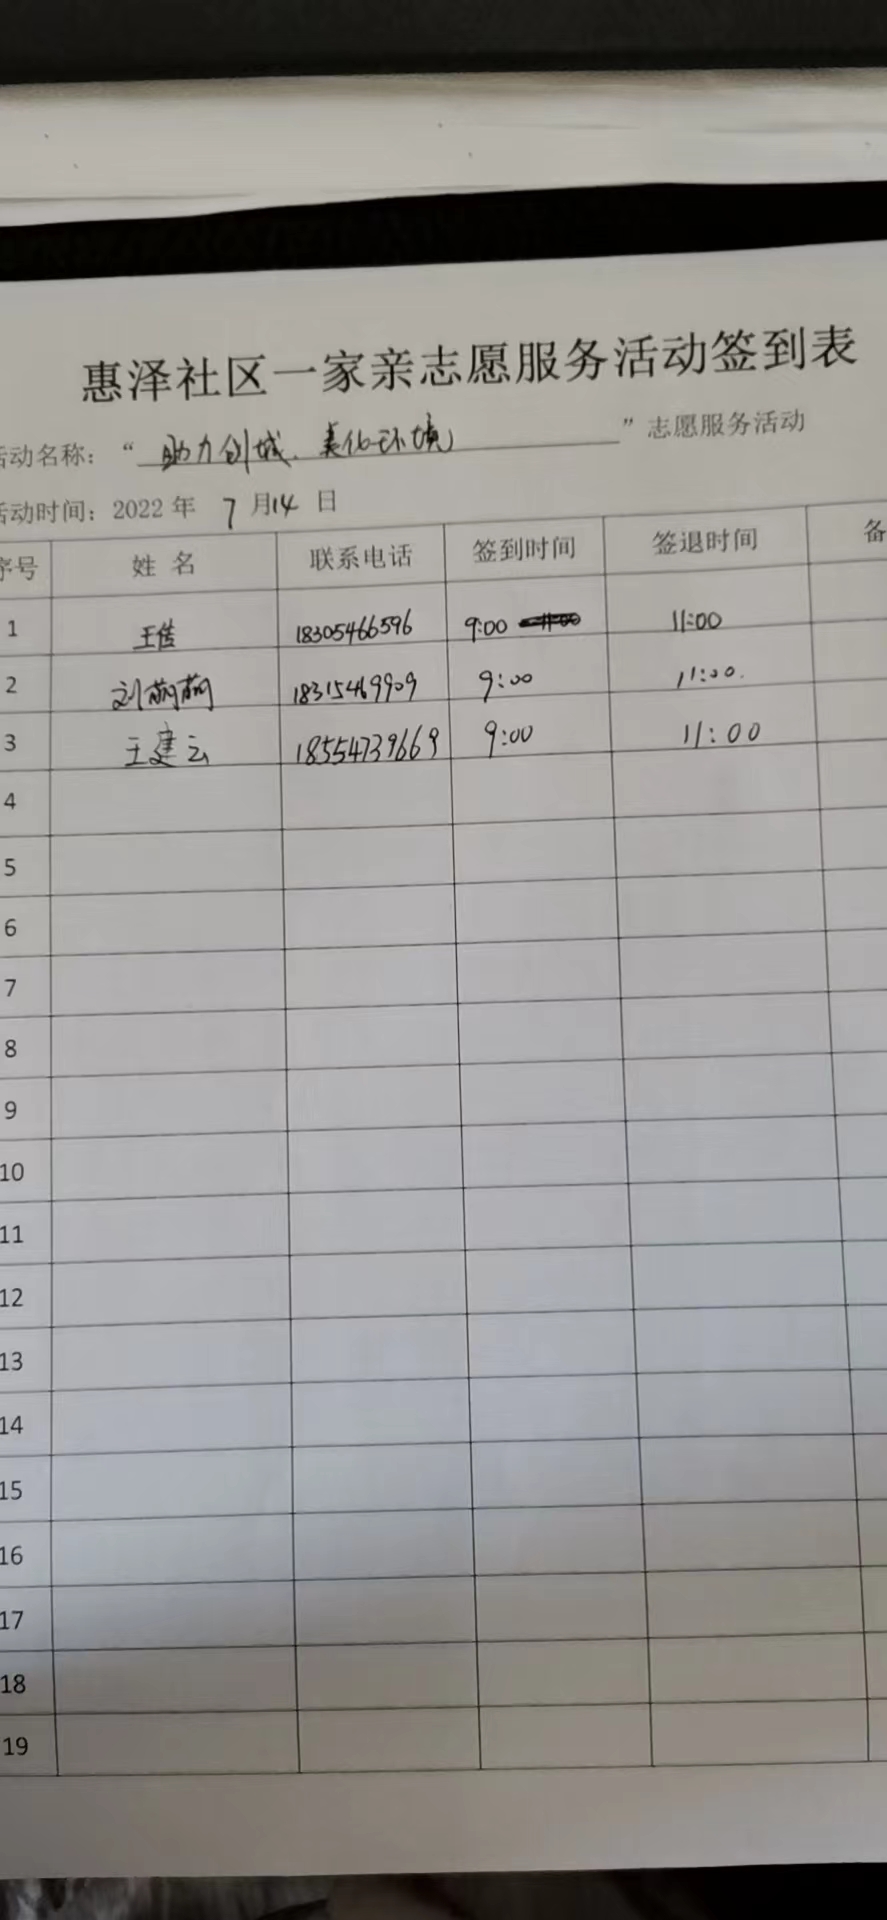 惠泽社区一家亲志愿服务活动签到表
活动名称：“助力创城、美化环境”志愿服务活动
活动时间：2022年 7月14日
序号 姓名 联系电话 签到时间 签退时间 备
1 王佳 18305466596 9:00 11:00
2 刘萌萌 18315469909 9:00 11:00.
3 王建云 18554739669 9:00 11:00
4
5
6
7
8
9
10
11
12
13
14
15
16
17
18
19